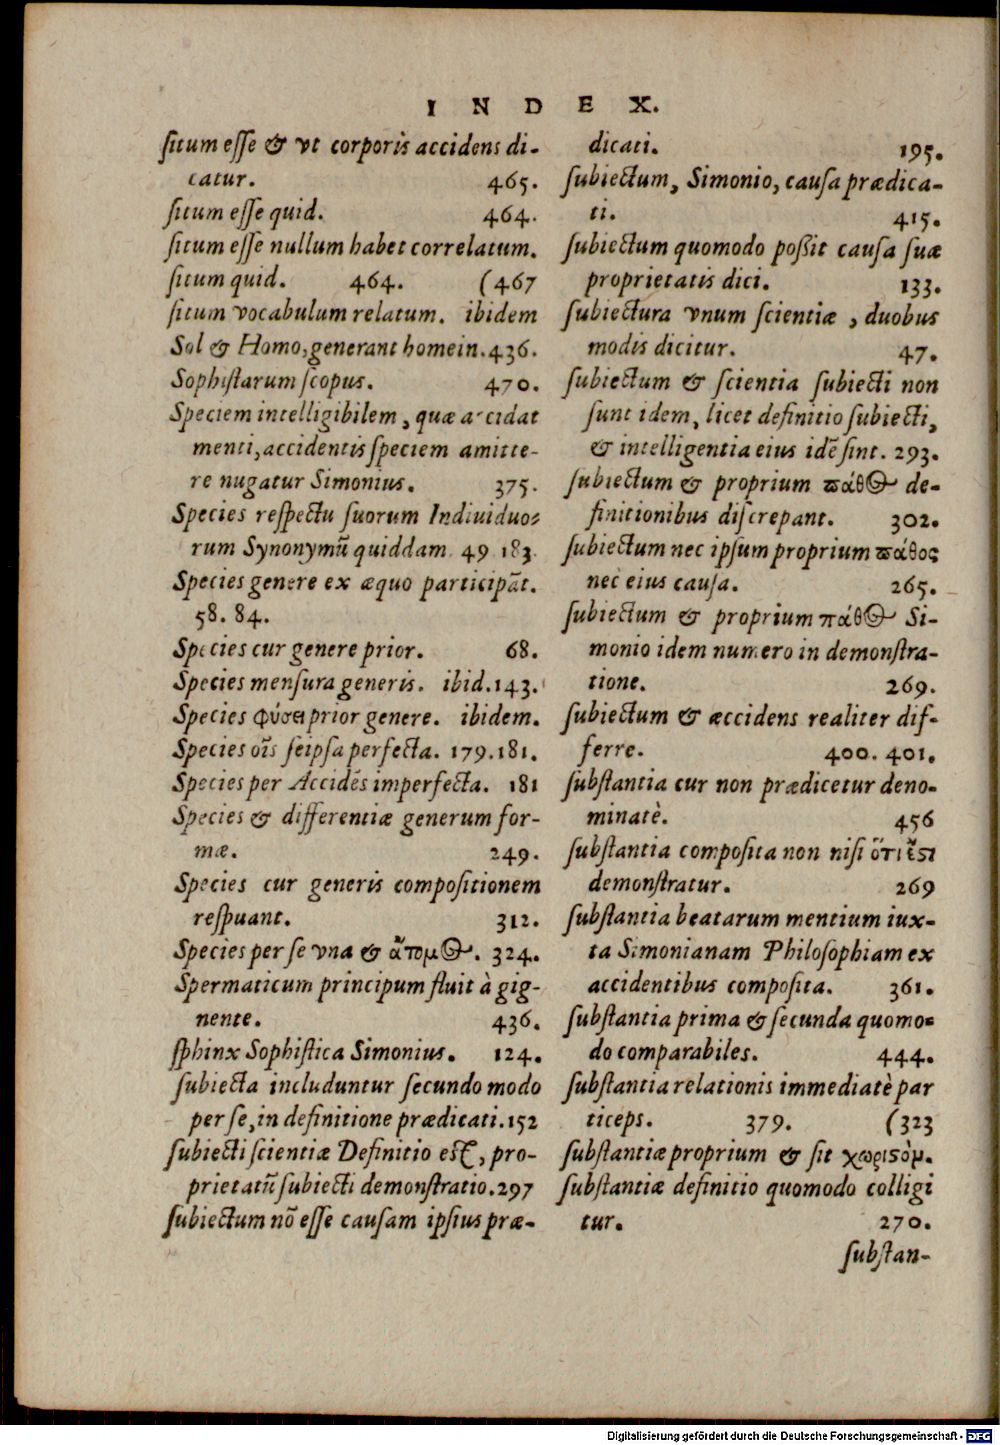 INDEX.
ſitum eſſe & vt corporis accidens di-
catur. 465.
ſitum eſſe quid. 464.
ſitum eſſe nullum habet correlatum.
ſitum quid. 464. (467
ſitum vocabulum relatum. ibidem
Sol & Homo, generant homein. 436.
Sophiſtarum ſcopus. 470.
Speciem intelligibilem, quæ accidat
menti, accidentis ſpeciem amitte-
re nugatur Simonius. 375.
Species reſpectu ſuorum Indiuiduo-
rum Synonymũ quiddam. 49 183.
Species genere ex æquo participãt.
58. 84.
Species cur genere prior. 68.
Species menſura generis. ibid. 143.
Species φύσει prior genere. ibidem.
Species oĩs ſeipſa perfecta. 179. 181.
Species per Accidẽs imperfecta. 181
Species & differentiæ generum for-
mæ. 249.
Species cur generis compoſitionem
reſpuant. 312.
Species per ſe vna & ἄτομος. 324.
Spermaticum principum fluit à gig-
nente. 436.
ſphinx Sophiſtica Simonius. 124.
ſubiecta includuntur ſecundo modo
per ſe, in definitione prædicati. 152
ſubiecti ſcientiæ Definitio eſt, pro-
prietatũ ſubiecti demonſtratio. 297
ſubiectum nõ eſſe cauſam ipſius præ-
dicati. 195.
ſubiectum, Simonio, cauſa prædica-
ti. 415.
ſubiectum quomodo poßit cauſa ſuæ
proprietatis dici. 133.
ſubiectura vnum ſcientiæ, duobus
modis dicitur. 47.
ſubiectum & ſcientia ſubiecti non
ſunt idem, licet definitio ſubiecti,
& intelligentia eius idẽ ſint. 293.
ſubiectum & proprium πάθος de-
finitionibus diſcrepant. 302.
ſubiectum nec ipſum proprium πάθος
nec eius cauſa. 265.
ſubiectum & proprium πάθος Si-
monio idem numero in demonſtra-
tione. 269.
ſubiectum & æccidens realiter dif-
ferre. 400. 401.
ſubſtantia cur non prædicetur deno-
minatè. 456
ſubſtantia compoſita non niſi ὅτι ἔστι
demonſtratur. 269
ſubſtantia beatarum mentium iux-
ta Simonianam Philoſophiam ex
accidentibus compoſita. 361.
ſubſtantia prima & ſecunda quomo-
do comparabiles. 444.
ſubſtantia relationis immediatè par
ticeps. 379. (323
ſubſtantiæ proprium & ſit χωριϛὸμ.
ſubſtantiæ definitio quomodo colligi
tur. 270.
ſubſtan-
Digitalisierung gefördert durch die Deutsche Forschungsgemeinschaft - DFG